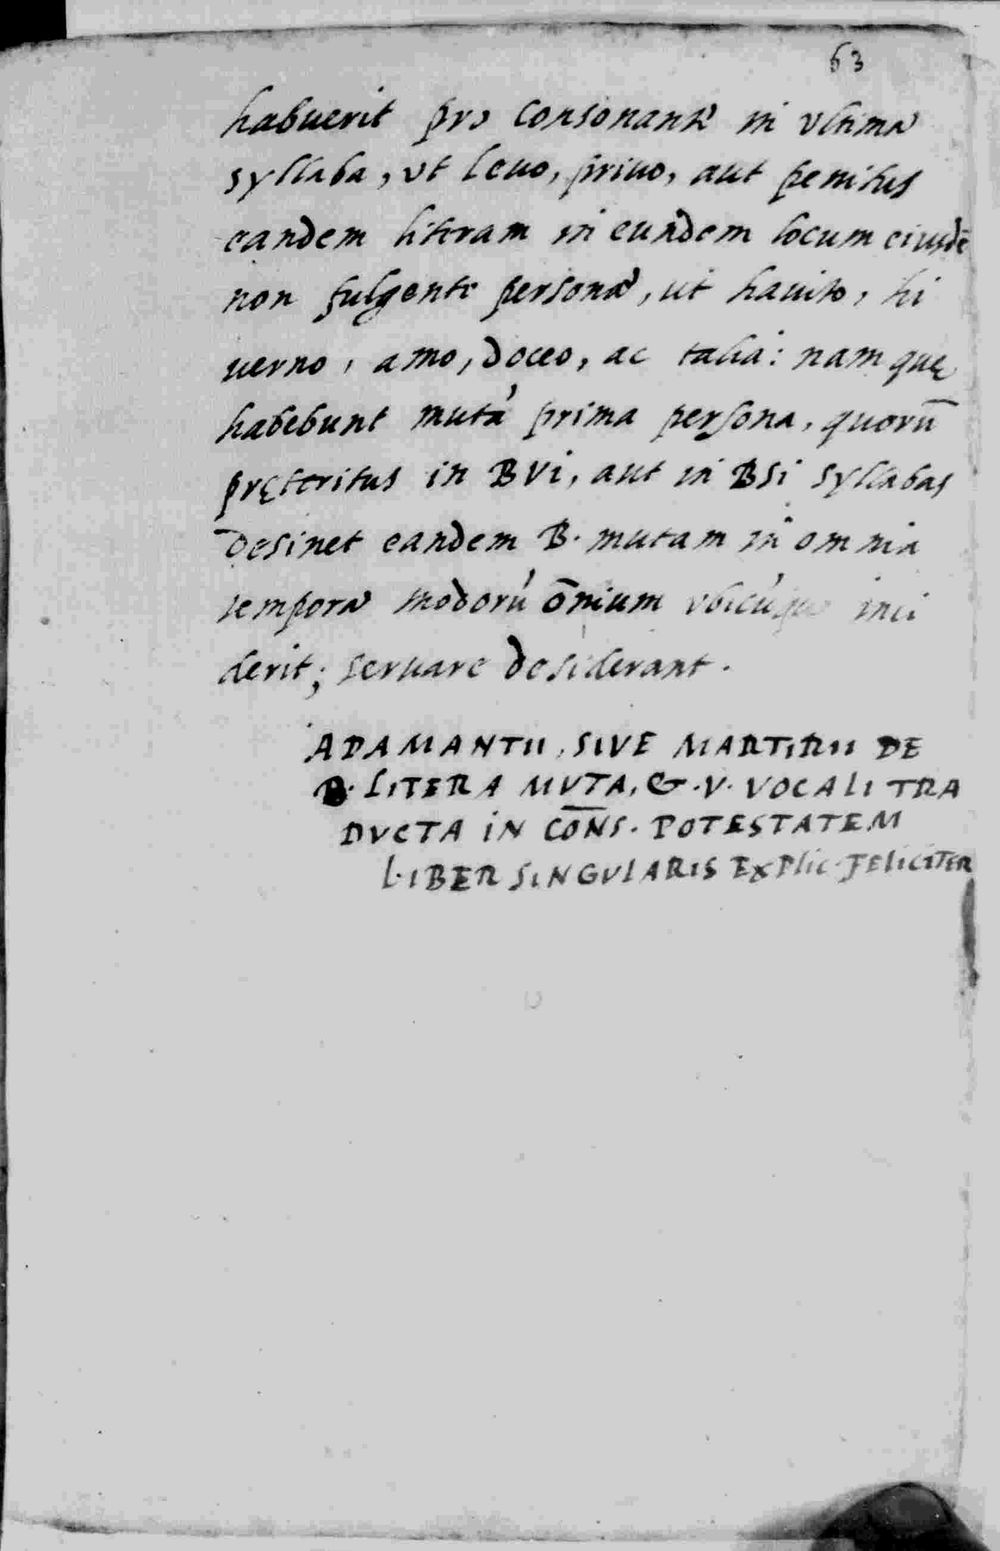 63
habuerit pro consonante in vltima
syllaba, vt leuo, priuo, aut penitus
eandem literam in eundem locum eiusdē
non fulgente persona, ut hauito, hi
uerno, amo, doceo, ac talia: nam quę
habebunt mutá prima persona, quorū
pręteritus in BVi, aut in BSi syllabas
Desinet eandem B. mutam in omnia
tempora modorú ōnium vbicúque inci
derit; seruare desiderant.
ADAMANTII, SIVE MARTIRII DE
B. LITERA MVTA, & .V. VOCALI TRA
DVCTA IN CŌNS. POTESTATEM
LIBER SINGVLARIS EXPlic. FELICITER